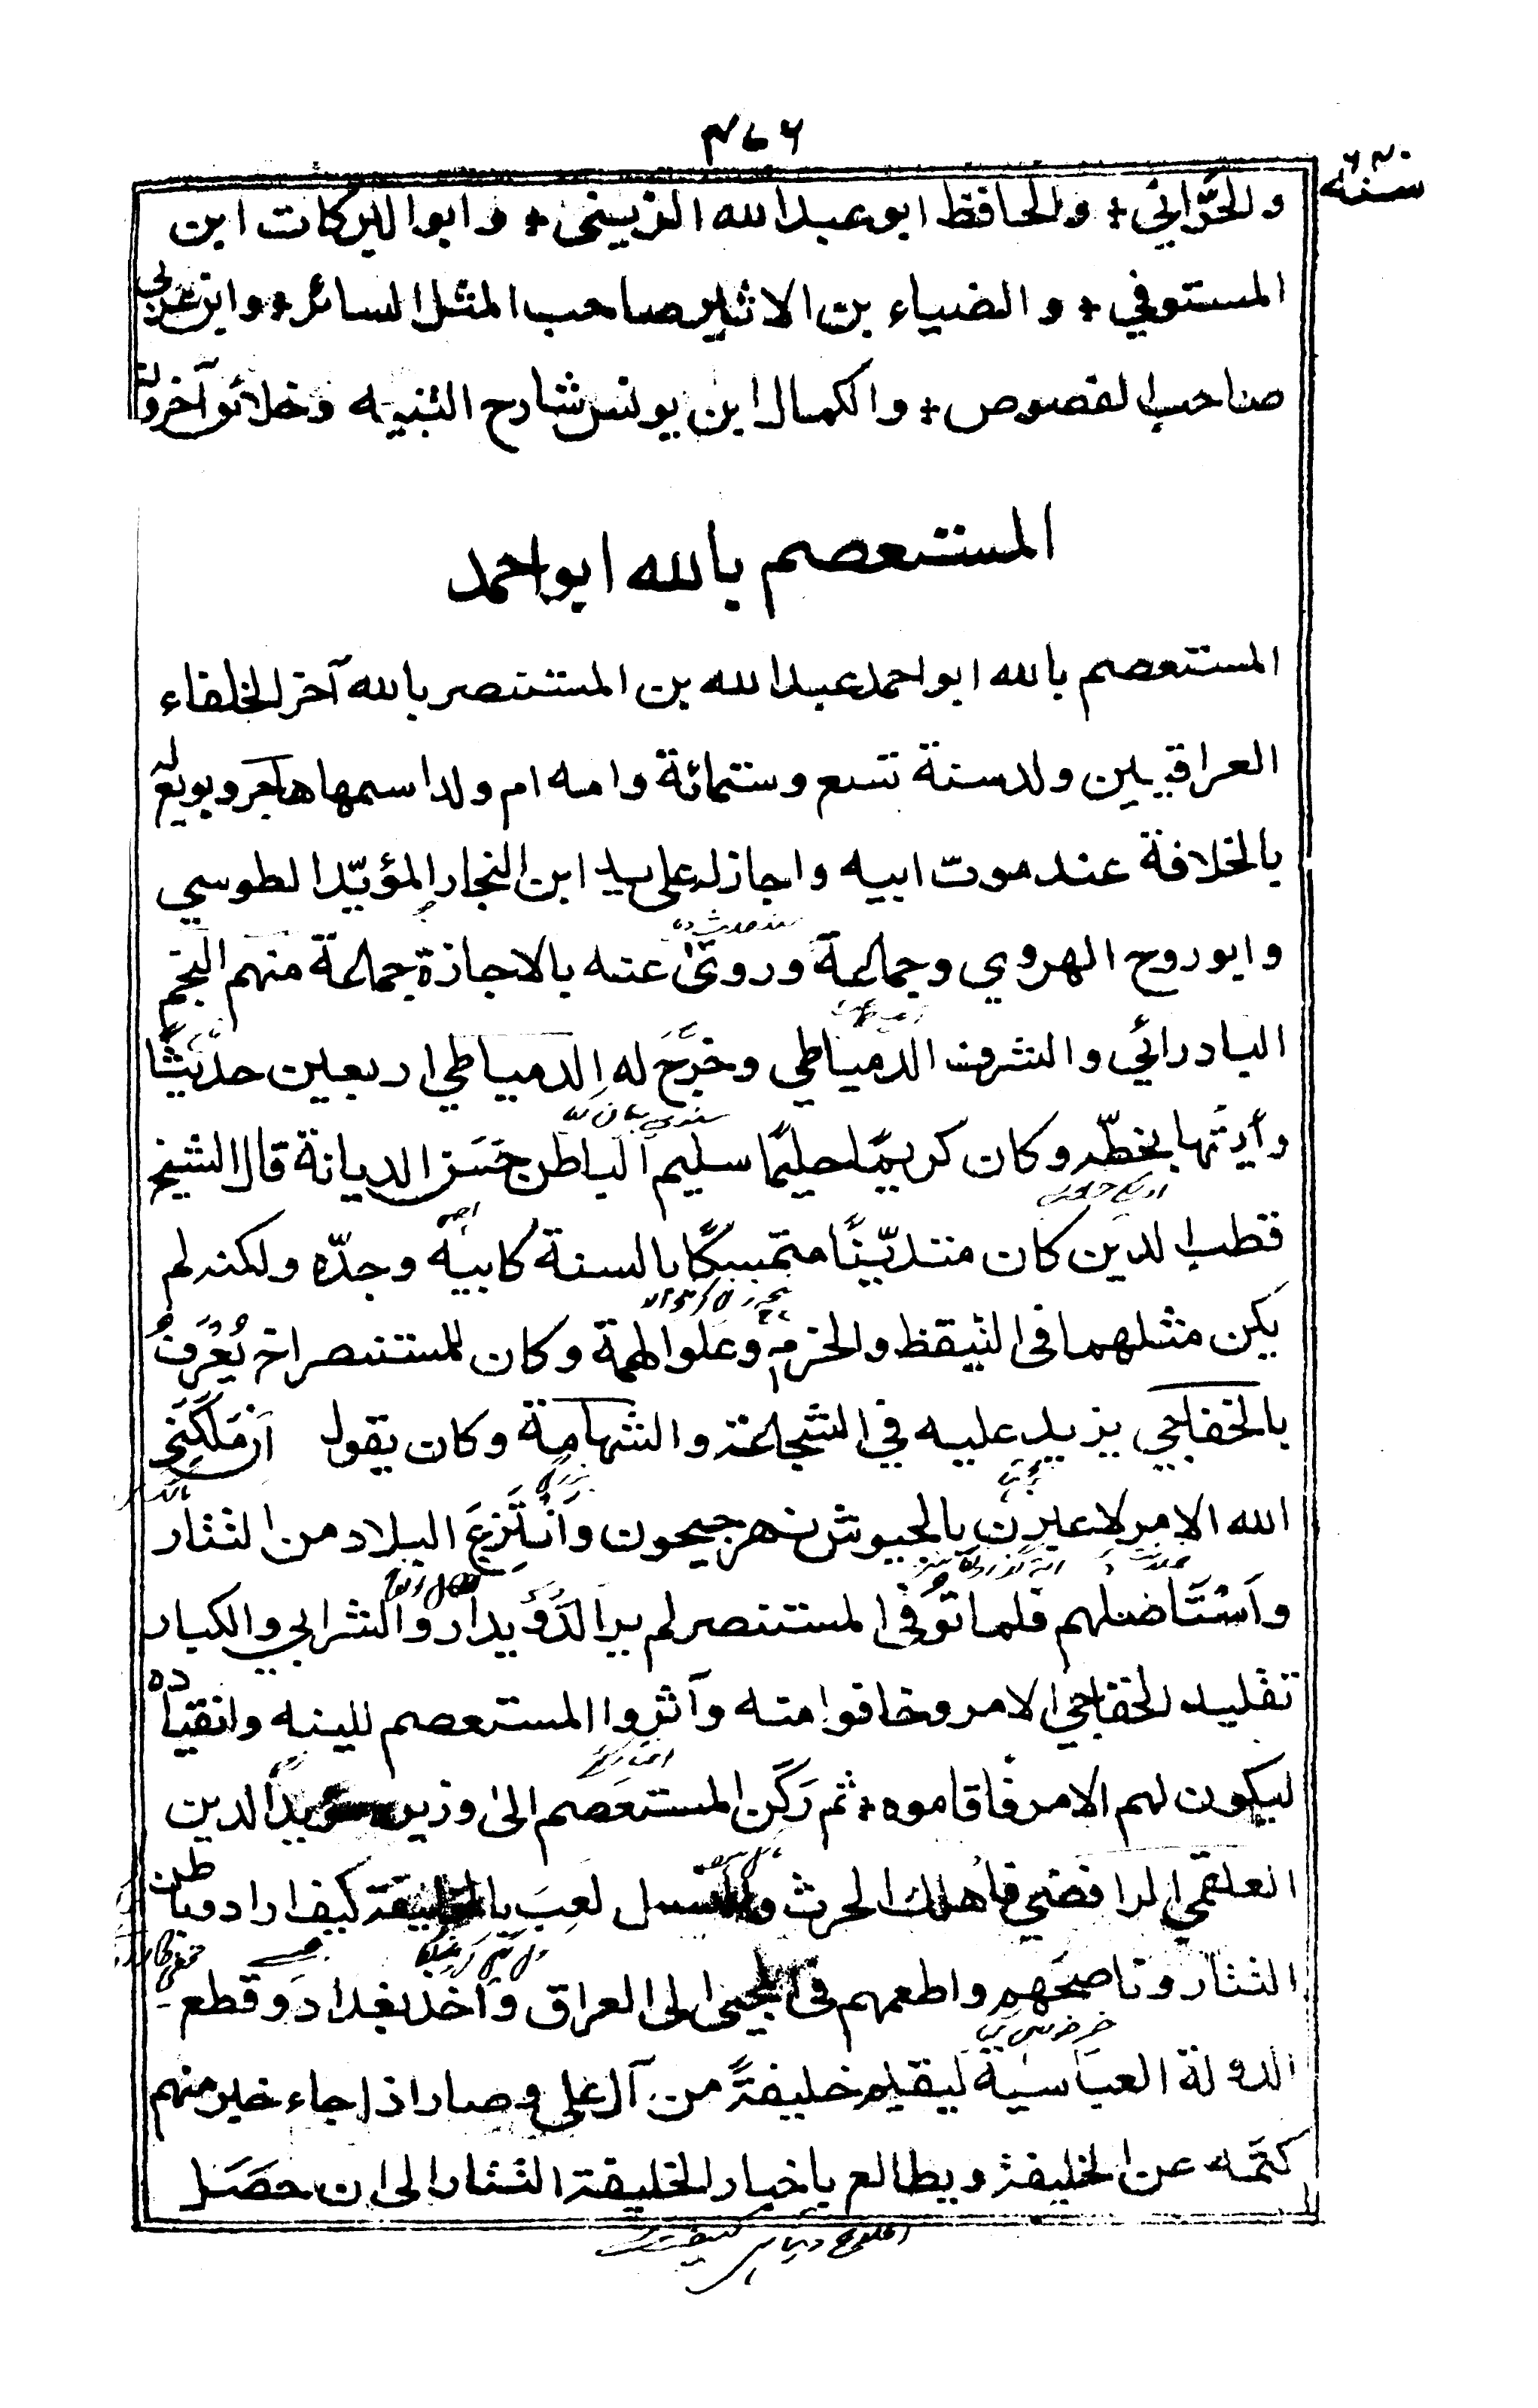 ٤٧٦
سنة ٦٤٠
والحَرَّانيّ + والحافظ ابو عبد الله الزينى + وابو البركات ابن
المستوفي + والضياء بن الاثير صاحب المثل السائر + وابن عربي
صاحب الفصوص + والكمال ابن يونس شارح التنبيه وخلائق آخرون
المستعصم بالله ابو احمد
المستعصم بالله ابو احمد عبد الله بن المستنصر بالله آخر الخلفاء
العراقيين ولد سنة تسع وستمائة وامه ام ولد اسمها هاجر وبويع له
بالخلافة عند موت ابيه واجاز له على يد ابن النجار المؤيّد الطوسي
وابو روح الهروي وجماعة وروى عنه بالاجازة جماعة منهم النجم
البادرائي والشرف الدمياطي وخَرَّجَ له الدمياطي اربعين حديثًا
رأيتها بخطّه وكان كريمًا حليمًا سليم الباطن حَسَن الديانة قال الشيخ
قطب الدين كان متديّنًا متمسكًا بالسنة كابيه وجدّه ولكنه لم
يكن مثلهما فى التيقظ والحزم وعلو الهمة وكان للمستنصر اخ يُعْرَفُ
بالخفاجي يزيد عليه في الشجاعة والشهامة وكان يقول اِنْ مَلَّكَنِي
الله الامر لاعبرن بالجيوش نهر جيحون وأَنْتَزِعَ البلاد من التتار
وأَسْتَأصلهم فلما تُوُفِّى المستنصر لم ير الدُّوَيدار والشرابي والكبار
تقليد الخفاجي الامر وخافوا منه وآثروا المستعصم للينه وانقياده
ليكون لهم الامر فاقاموه + ثم رَكَنَ المستعصم الى وزيره مؤيد الدين
العلقمي الرافضي فأهلك الحرث والنسل لعِبَ بالخليفة كيف اراد وباطن
التتار وناصحَهم واطعمهم فى المجئ الى العراق وأخذ بغداد وقطع
الدولة العباسية ليقيم خليفةً من آل على وصار اذا جاء خبر منهم
كتمه عن الخليفة ويطالع باخبار الخليفة التتار الى ان حصَل